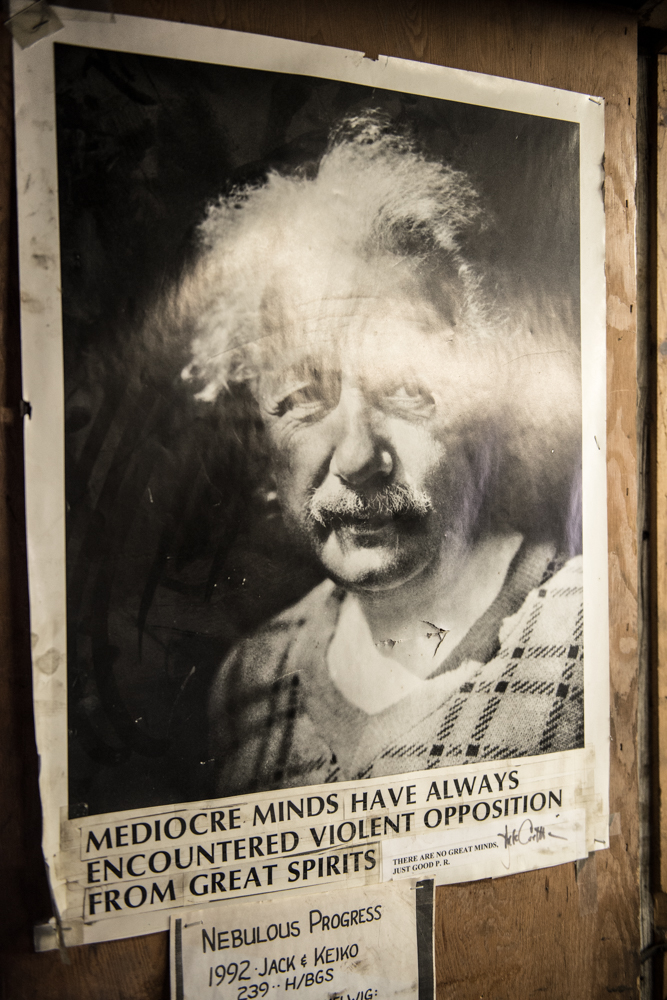 MEDIOCRE MINDS HAVE ALWAYS
ENCOUNTERED VIOLENT OPPOSITION
FROM GREAT SPIRITS
THERE ARE NO GREAT MINDS,
JUST GOOD P. R.
NEBULOUS PROGRESS
1992 · JACK & KEIKO
239 · · H/BGS